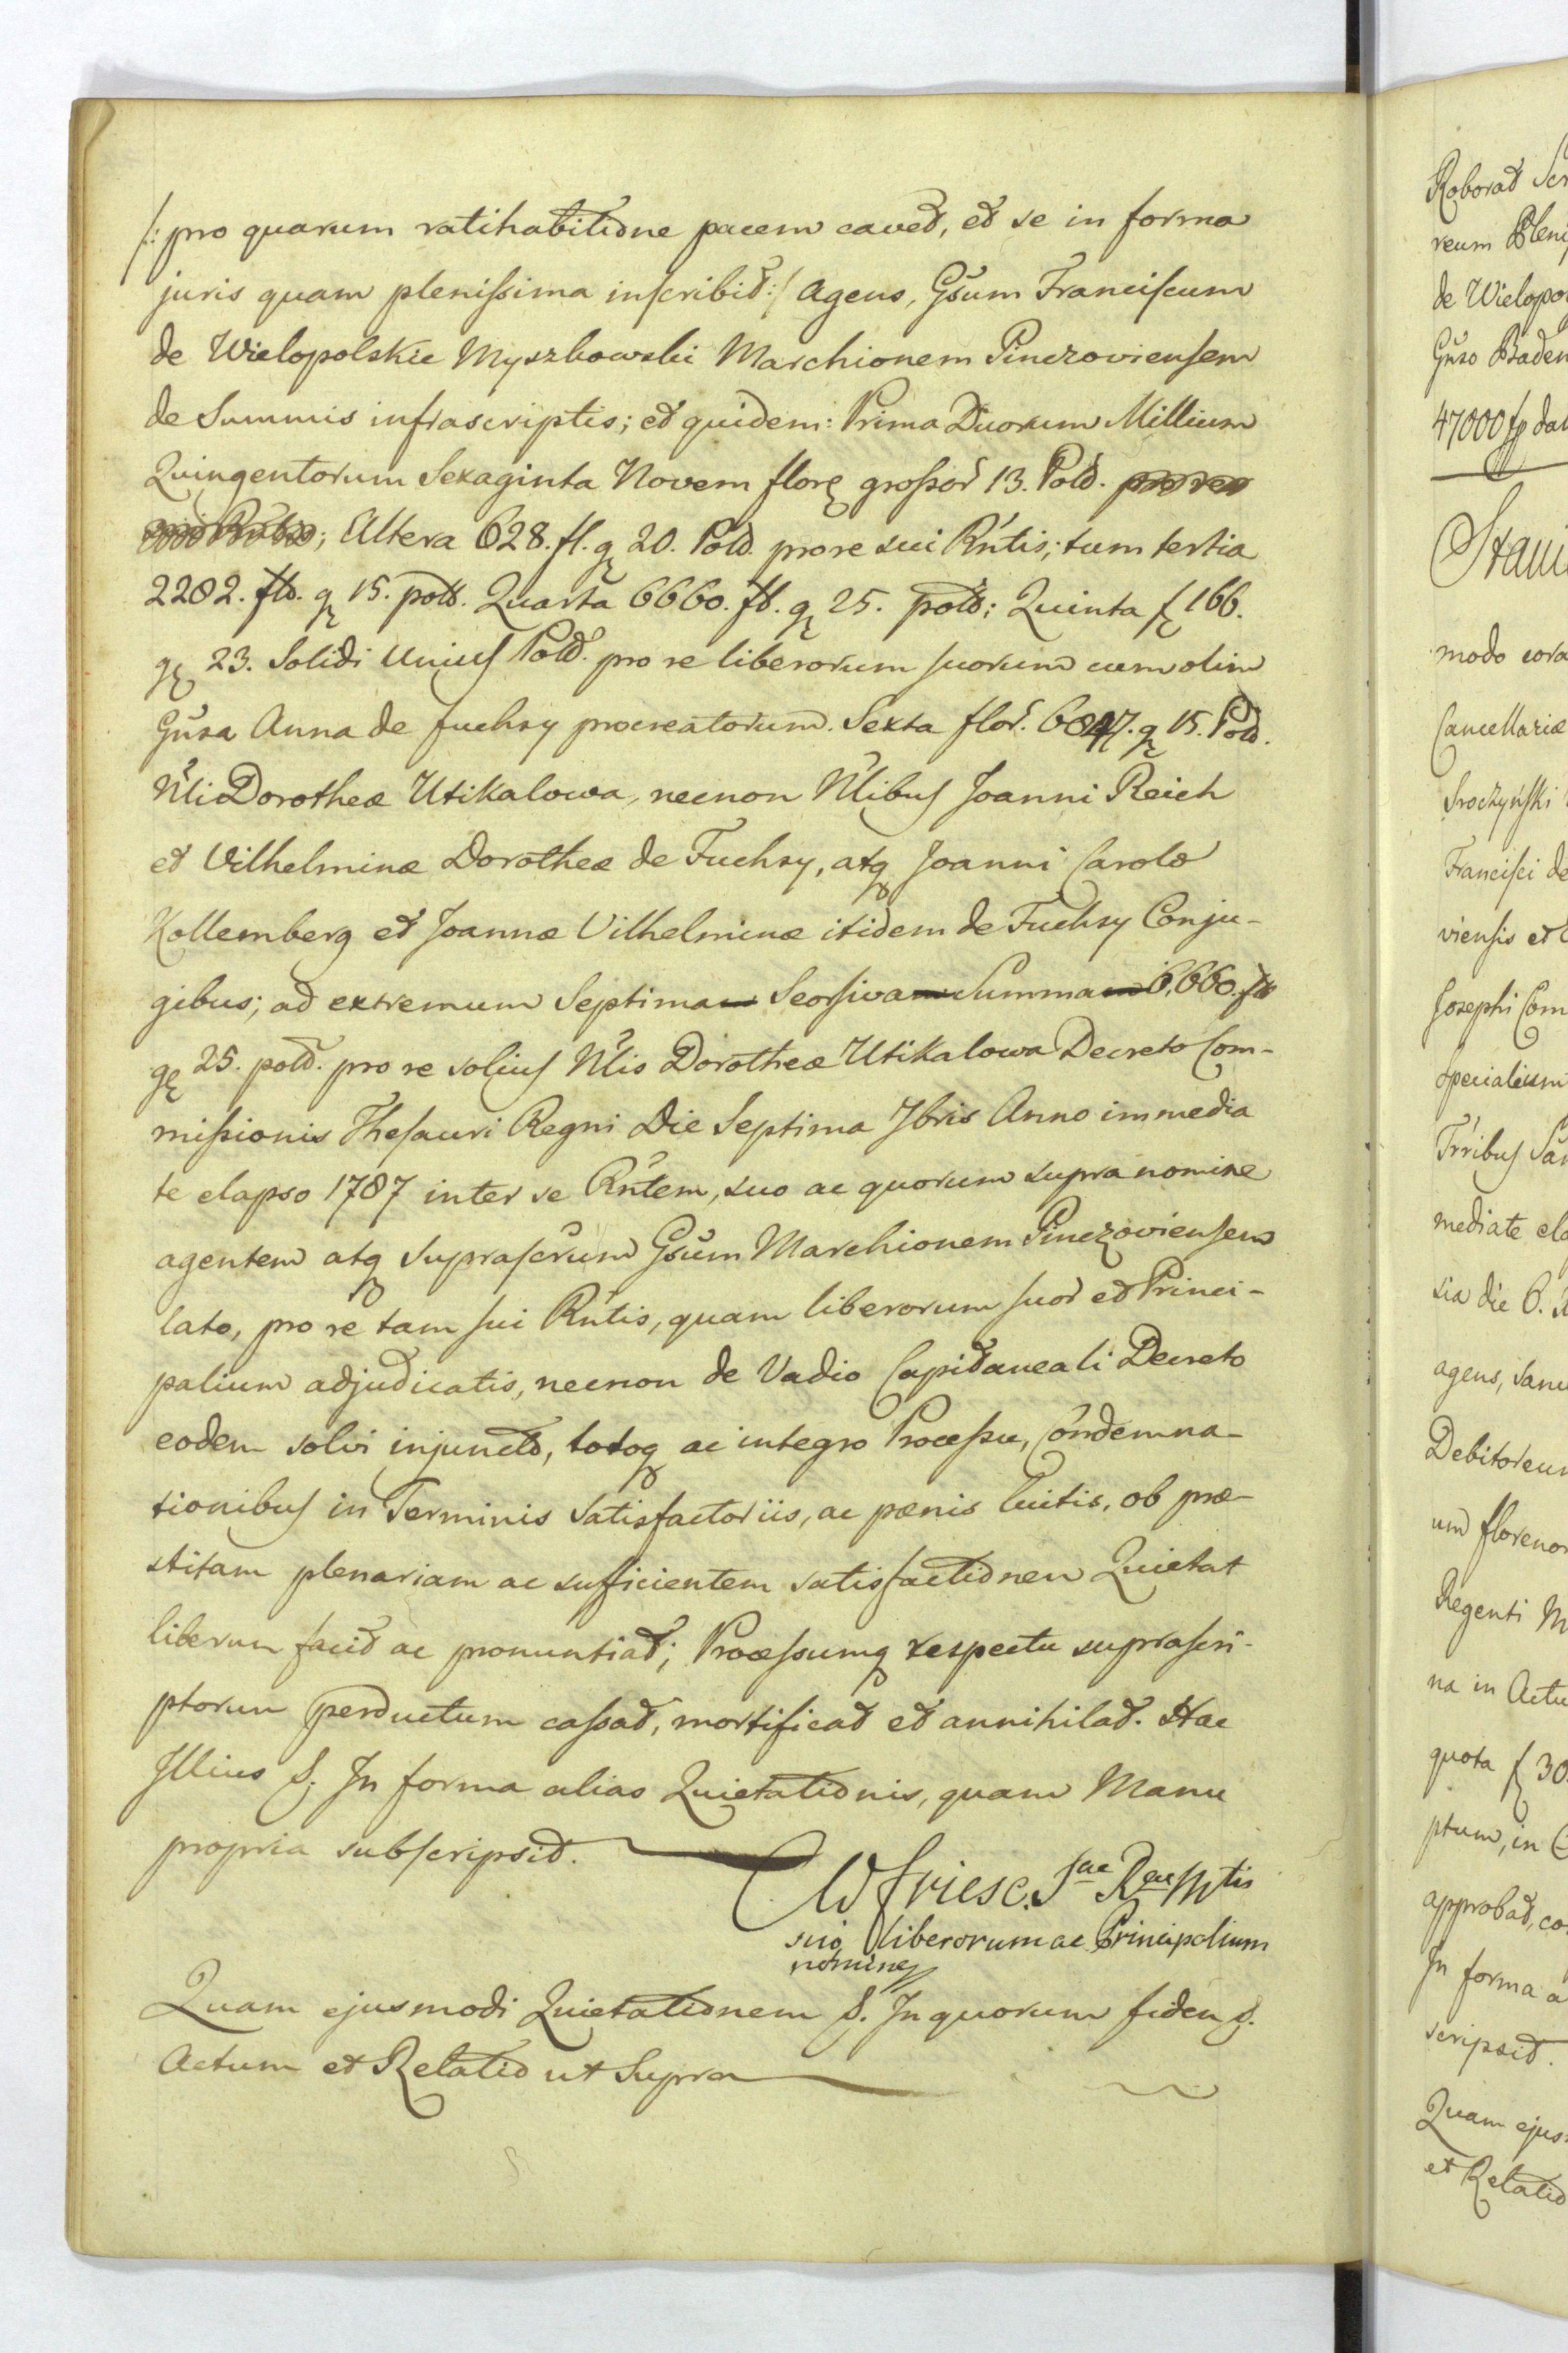 /: pro quarum ratihabitione pacem cavet, et se in forma
juris quam plenissima inscribit :/ Agens, Gsum Franciscum
de Wielopolskie Myszkowski Marchionem Pinczoviensem
de Summis infrascriptis; et quidem: Prima Duorum Millium
Quingentorum Sexaginta Novem flor. grossor 13. Pold.
; Altera 628. fl. g. 20. Pold. pro re sui Rntis; tum tertia
2282. fld. g. 15. pold. Quarta 6660. fl. g. 25. pold: Quinta f. 166.
g. 23. Solidi Unius Pold. pro re liberorum suorum cum olim
Gusa Anna de Fuchsy procreatorum. Sexta flor. g. 15. Pold.
Nli Dorotheæ Utikalowa, necnon Nlibus Joanni Reich
et Vilhelminæ Dorotheæ de Fuchsy, atq Joanni Carolo
Kollemberg et Joannæ Vilhelminæ itidem de Fuchsy Conju-
gibus; ad extremum Septima Seorsiva Summa 6,660. fl
g. 25. pold. pro re solius Nlis Dorotheæ Utikalowa Decreto Com-
missionis Thesauri Regni Die Septima 7bris Anno immedia
te elapso 1787 inter se Rntem, suo ac quorum supra nomine
agentem atq suprascrum Gsum Marchionem Pinczoviensem
lato, pro re tam sui Rntis, quam liberorum suor et Princi-
palium adjudicatis, necnon de Vadio Capitaneali Decreto
eodem solvi injuncto, totoq ac integro Processu, Condemna-
tionibus in Terminis Satisfactoriis, ac pœnis luitis, ob præ-
stitam plenariam ac sufficientem satisfactionem Quietat
liberum facit ac pronuntiat; Processumq respectu suprascri-
ptorum perductum cassat, mortificat et annihilat. Hac
Illius S. In forma alias Quietationis, quam Manu
propria subscripsit.
CW Friese. Sae Rae Mtis
suo, liberorum ac Principalium
nomine
Quam ejusmodi Quietationem S. In quorum fidem S.
Actum et Relatio ut Supra
Roborat
reum
de Wielopo
Guso Baden
47000 fp dat
Stani
modo cora
Cancellariæ
Sroczyński
Francisci de
viensis et
Josephi Com
Specialium
Trribus
mediate ela
sia die 6.
agens,
Debitoreum
um florenor
Regenti M
na in Actu
quota f 30
ptum, in
approbat, co
In forma a
scripsit.
Quam ejus
et Relatio